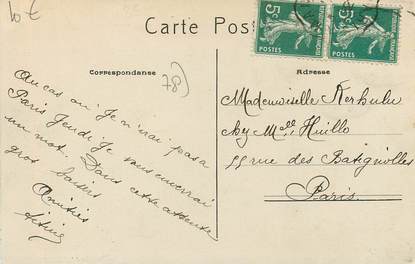 10 €
Carte Pos
5c
5c
POSTES
POSTES
Correspondance
78)
Adresse
Au cas où Je n'irai pas a
Paris Jeudi Je vous enverrai
un mot. Dans cette attente
gros baisers
Amitiés
Mademoiselle Kerhulu
chez Melle Huillo
55 rue des Batignolles
Paris